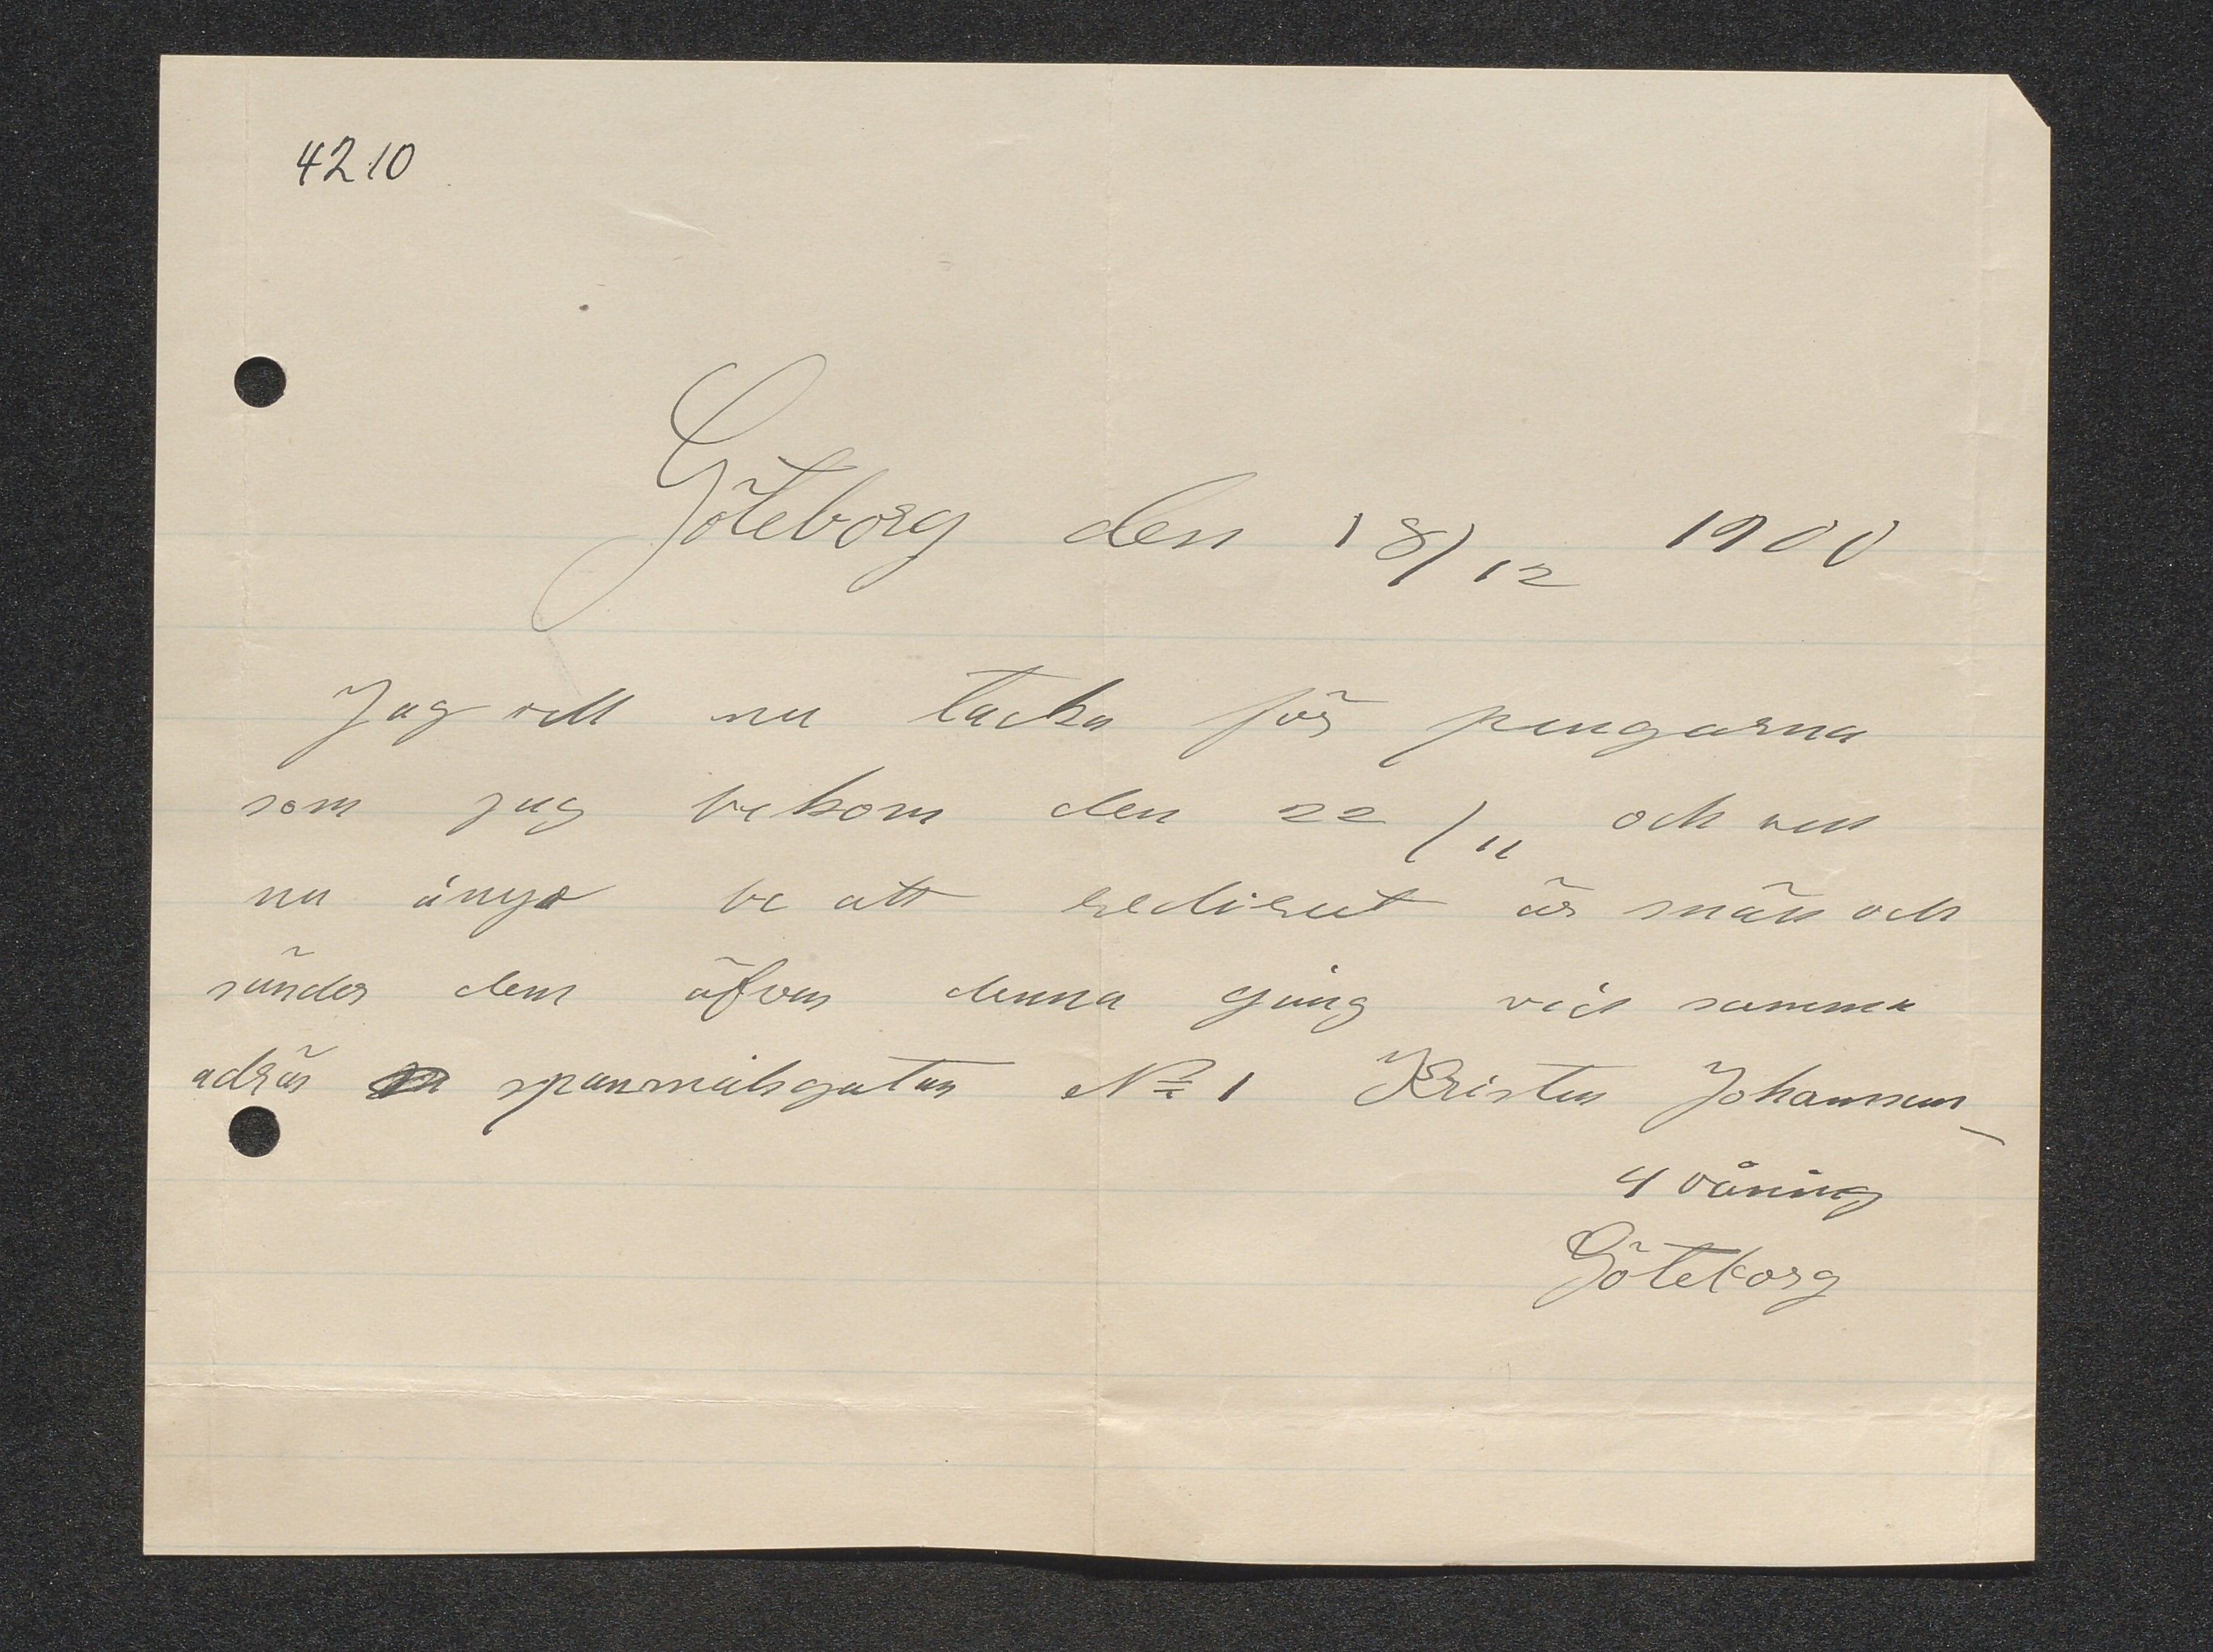 4210
Göteborg den 18/12 1900
Jag vill nu tacka för pengarna
som jag bekom den 22/11 och vill
nu ånyo be att redi eut är snäll och
sänder dem äfven denna gång vid samma
adräs spanmålsgatan No 1 Kristen Johannsen
4 våning
Göteborg